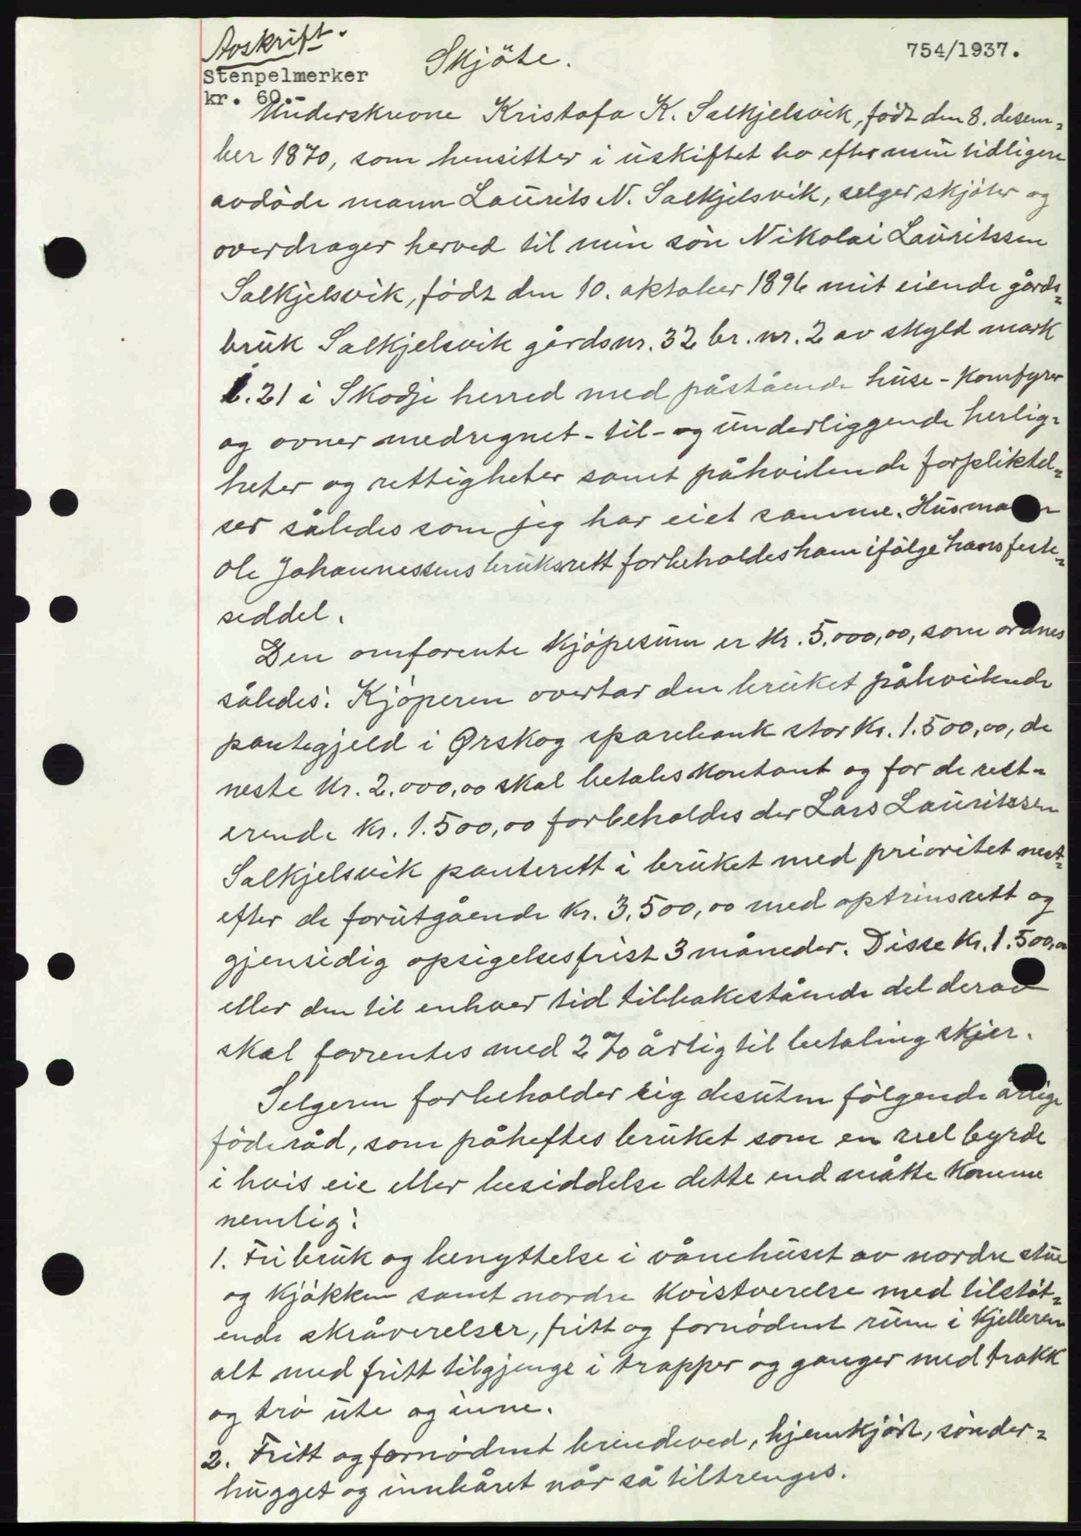 Avskrift.
Skjöte.
754/1937.
Stenpelmerker
kr. 60.
Underskrevne Kristofa K. Salkjelsvik, födt den 8. desem=
ber 1870, som hensitter i uskiftet bo efter min tidligere
avdöde mann Laurits N. Salkjelsvik, selger skjöter og
overdrager herved til min sön Nikolai Lauritssen
Salkjelsvik, födt den 10. oktober 1896 mit eiende gårds=
bruk Salkjelsvik gårdsnr. 32 br. nr. 2 av skyld mark
1.21 i Skodje herred med påstående huse - komfyrer
og ovner medregnet - til - og underliggende herlig=
heter og rettigheter samt påhvilende forpliktel=
ser således som jeg har eiet samme. Husmann
Ole Johannessens bruksrett forbeholdes ham ifölge hans feste=
seddel.
Den omforente kjöpesum er kr. 5.000,00, som ordnes
således: Kjöperen overtar den bruket påhvilende
pantegjeld i Ørskog sparebank stor kr. 1.500,00, de
neste kr. 2.000,00 skal betales kontant og for de rest=
erende kr. 1.500,00 forbeholdes der Lars Lauritssen
Salkjelsvik panterett i bruket med prioritet nest=
efter de forutgående kr. 3.500,00 med optrinsrett og
gjensidig opsigelsesfrist 3 måneder. Disse kr. 1.500,00
eller den til enhver tid tilbakestående del derav
skal forrentes med 2 % årlig til betaling skjer.
Selgeren forbeholder sig desuten fölgende årlige
föderåd, som påheftes bruket som en reel byrde
i hvis eie eller besiddelse dette end måtte komme
nemlig:
1. Fri bruk og benyttelse i vånehuset av nordre stue
og kjökken samt nordre kvistverelse med tilstöt=
ende skråverelser, fritt og fornödent rum i kjelleren
alt med fritt tilgjenge i trapper og ganger med trakk
og trö ute og inne.
2. Fritt og fornödent brendeved, hjemkjört, sönder=
hugget og innbåret når så tiltrenges.